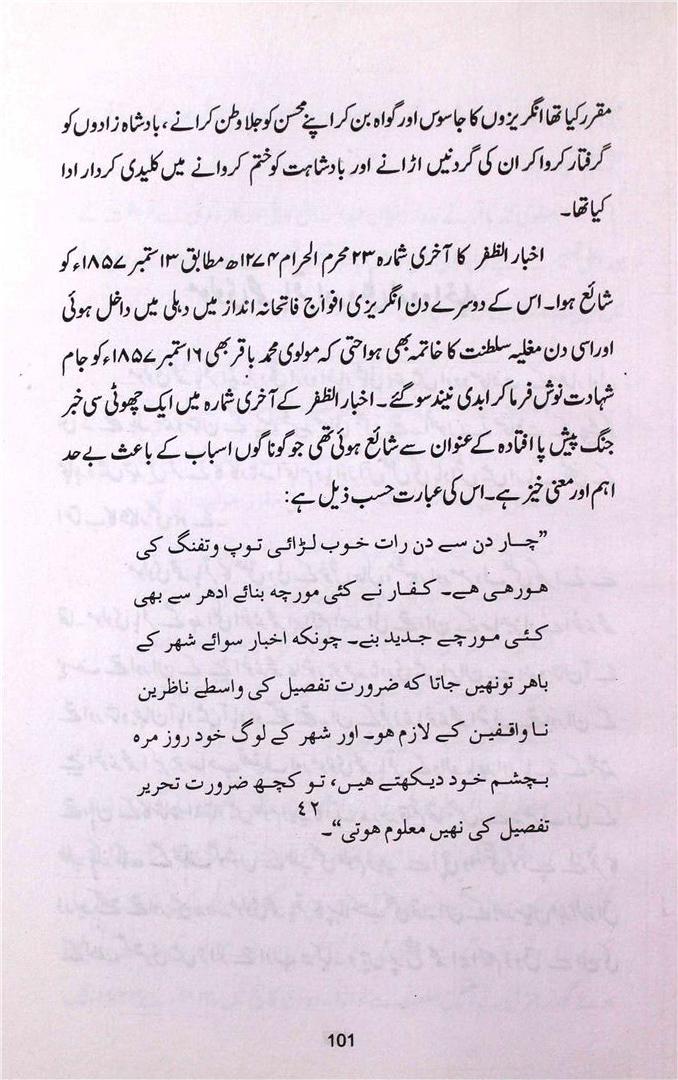 مقرر کیا تھا انگریزوں کا جاسوس اور گواہ بن کر اپنے محسن کو جلاوطن کرانے، بادشاہ زادوں کو
گرفتار کروا کر ان کی گردنیں اڑانے اور بادشاہت کو ختم کروانے میں کلیدی کردار ادا
کیا تھا۔
اخبار الظفر کا آخری شمارہ ۲۳ محرم الحرام ۱۲۷۴ھ مطابق ۱۳ ستمبر ۱۸۵۷ء کو
شائع ہوا۔ اس کے دوسرے دن انگریزی افواج فاتحانہ انداز میں دہلی میں داخل ہوئی
اور اسی دن مغلیہ سلطنت کا خاتمہ بھی ہوا حتی کہ مولوی محمد باقر بھی ۱۶ ستمبر ۱۸۵۷ء کو جام
شہادت نوش فرما کر ابدی نیند سو گئے۔ اخبار الظفر کے آخری شمارہ میں ایک چھوٹی سی خبر
جنگ پیش پا افتادہ کے عنوان سے شائع ہوئی تھی جو گوناگوں اسباب کے باعث بے حد
اہم اور معنی خیز ہے۔ اس کی عبارت حسب ذیل ہے:
”چار دن سے دن رات خوب لڑائی توپ و تفنگ کی
ہورہی ہے۔ کفار نے کئی مورچہ بنائے ادھر سے بھی
کئی مورچے جدید بنے۔ چونکہ اخبار سوائے شہر کے
باہر تو نہیں جاتا کہ ضرورت تفصیل کی واسطے ناظرین
نا واقفین کے لازم ہو۔ اور شہر کے لوگ خود روز مرہ
بچشم خود دیکھتے ہیں، تو کچھ ضرورت تحریر
تفصیل کی نہیں معلوم ہوتی“۔ ۴۲
101